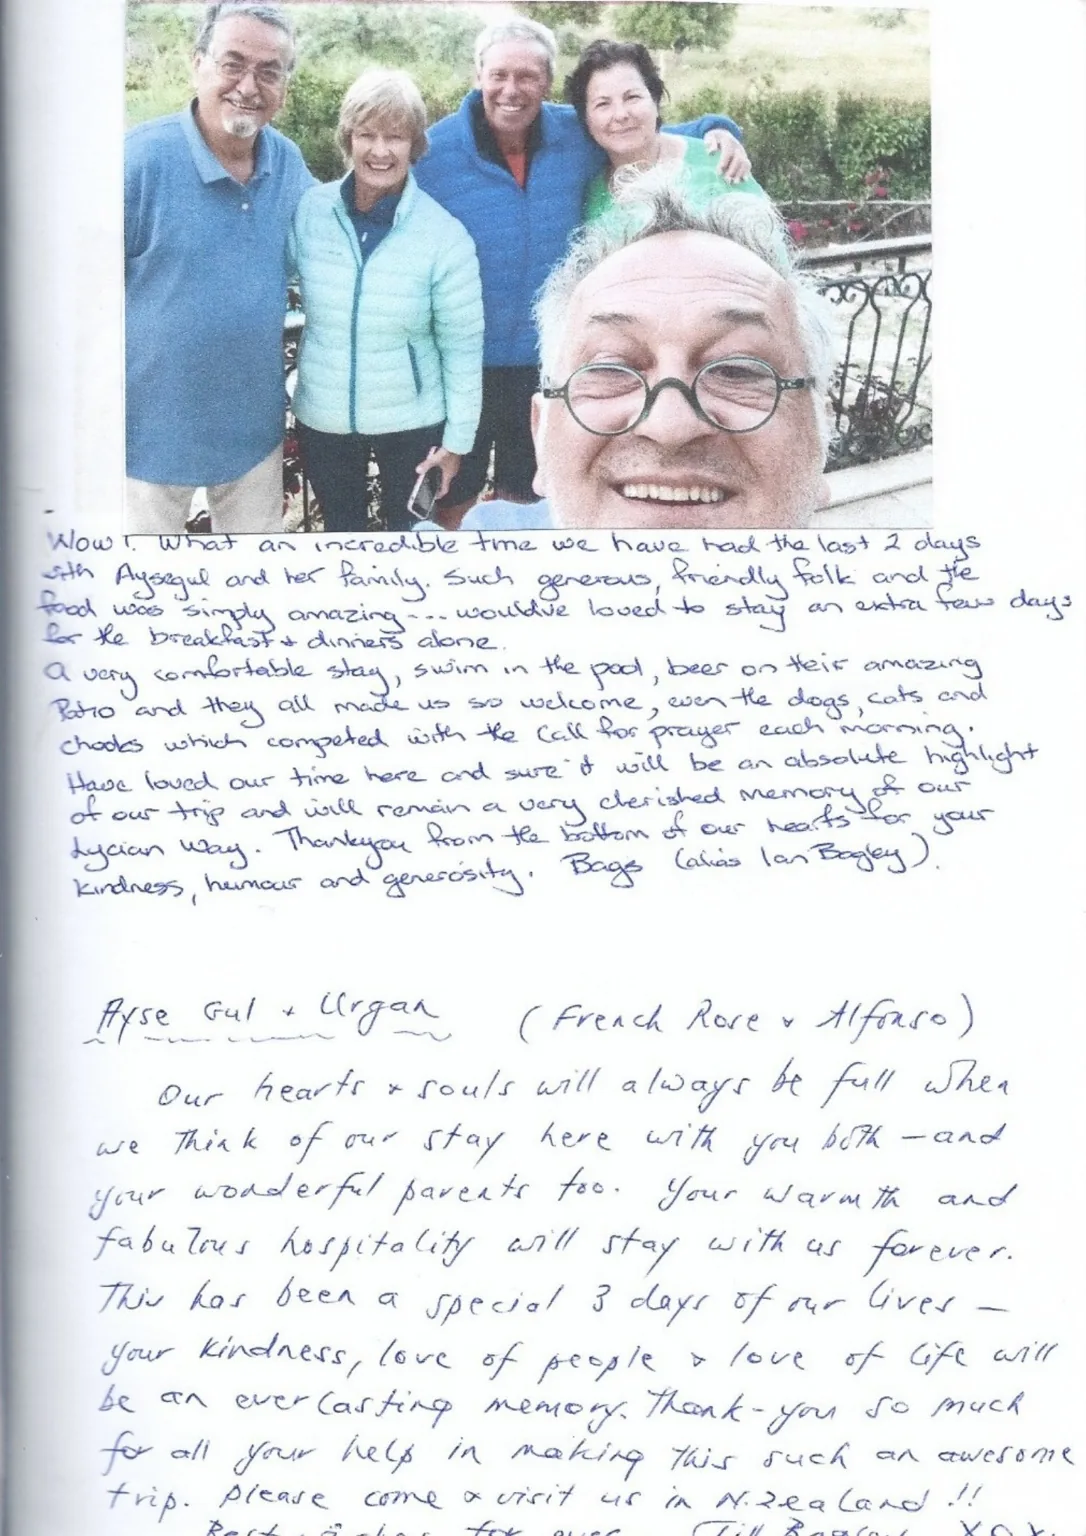 Wow! What an incredible time we have had the last 2 days
with Aysegul and her family. Such generous, friendly folk and the
food was simply amazing... would've loved to stay an extra few days
for the breakfast + dinners alone.
A very comfortable stay, swim in the pool, beer on their amazing
Patio and they all made us so welcome, even the dogs, cats and
chooks which competed with the call for prayer each morning.
Have loved our time here and sure it will be an absolute highlight
of our trip and will remain a very cherished memory of our
Lycian Way. Thankyou from the bottom of our hearts for your
kindness, humour and generosity. Bags (alias Ian Bagley).
Ayse Gul + Urgan (French Rose + Alfonso)
Our hearts + souls will always be full when
we think of our stay here with you both - and
your wonderful parents too. Your warmth and
fabulous hospitality will stay with us forever.
This has been a special 3 days of our lives -
your kindness, love of people + love of life will
be an everlasting memory. Thank-you so much
for all your help in making this such an awesome
trip. Please come + visit us in N.Zealand !!
Best for ever Jill